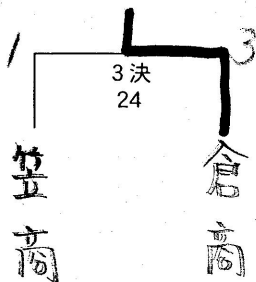 1 3
3決
24
笠商 倉商